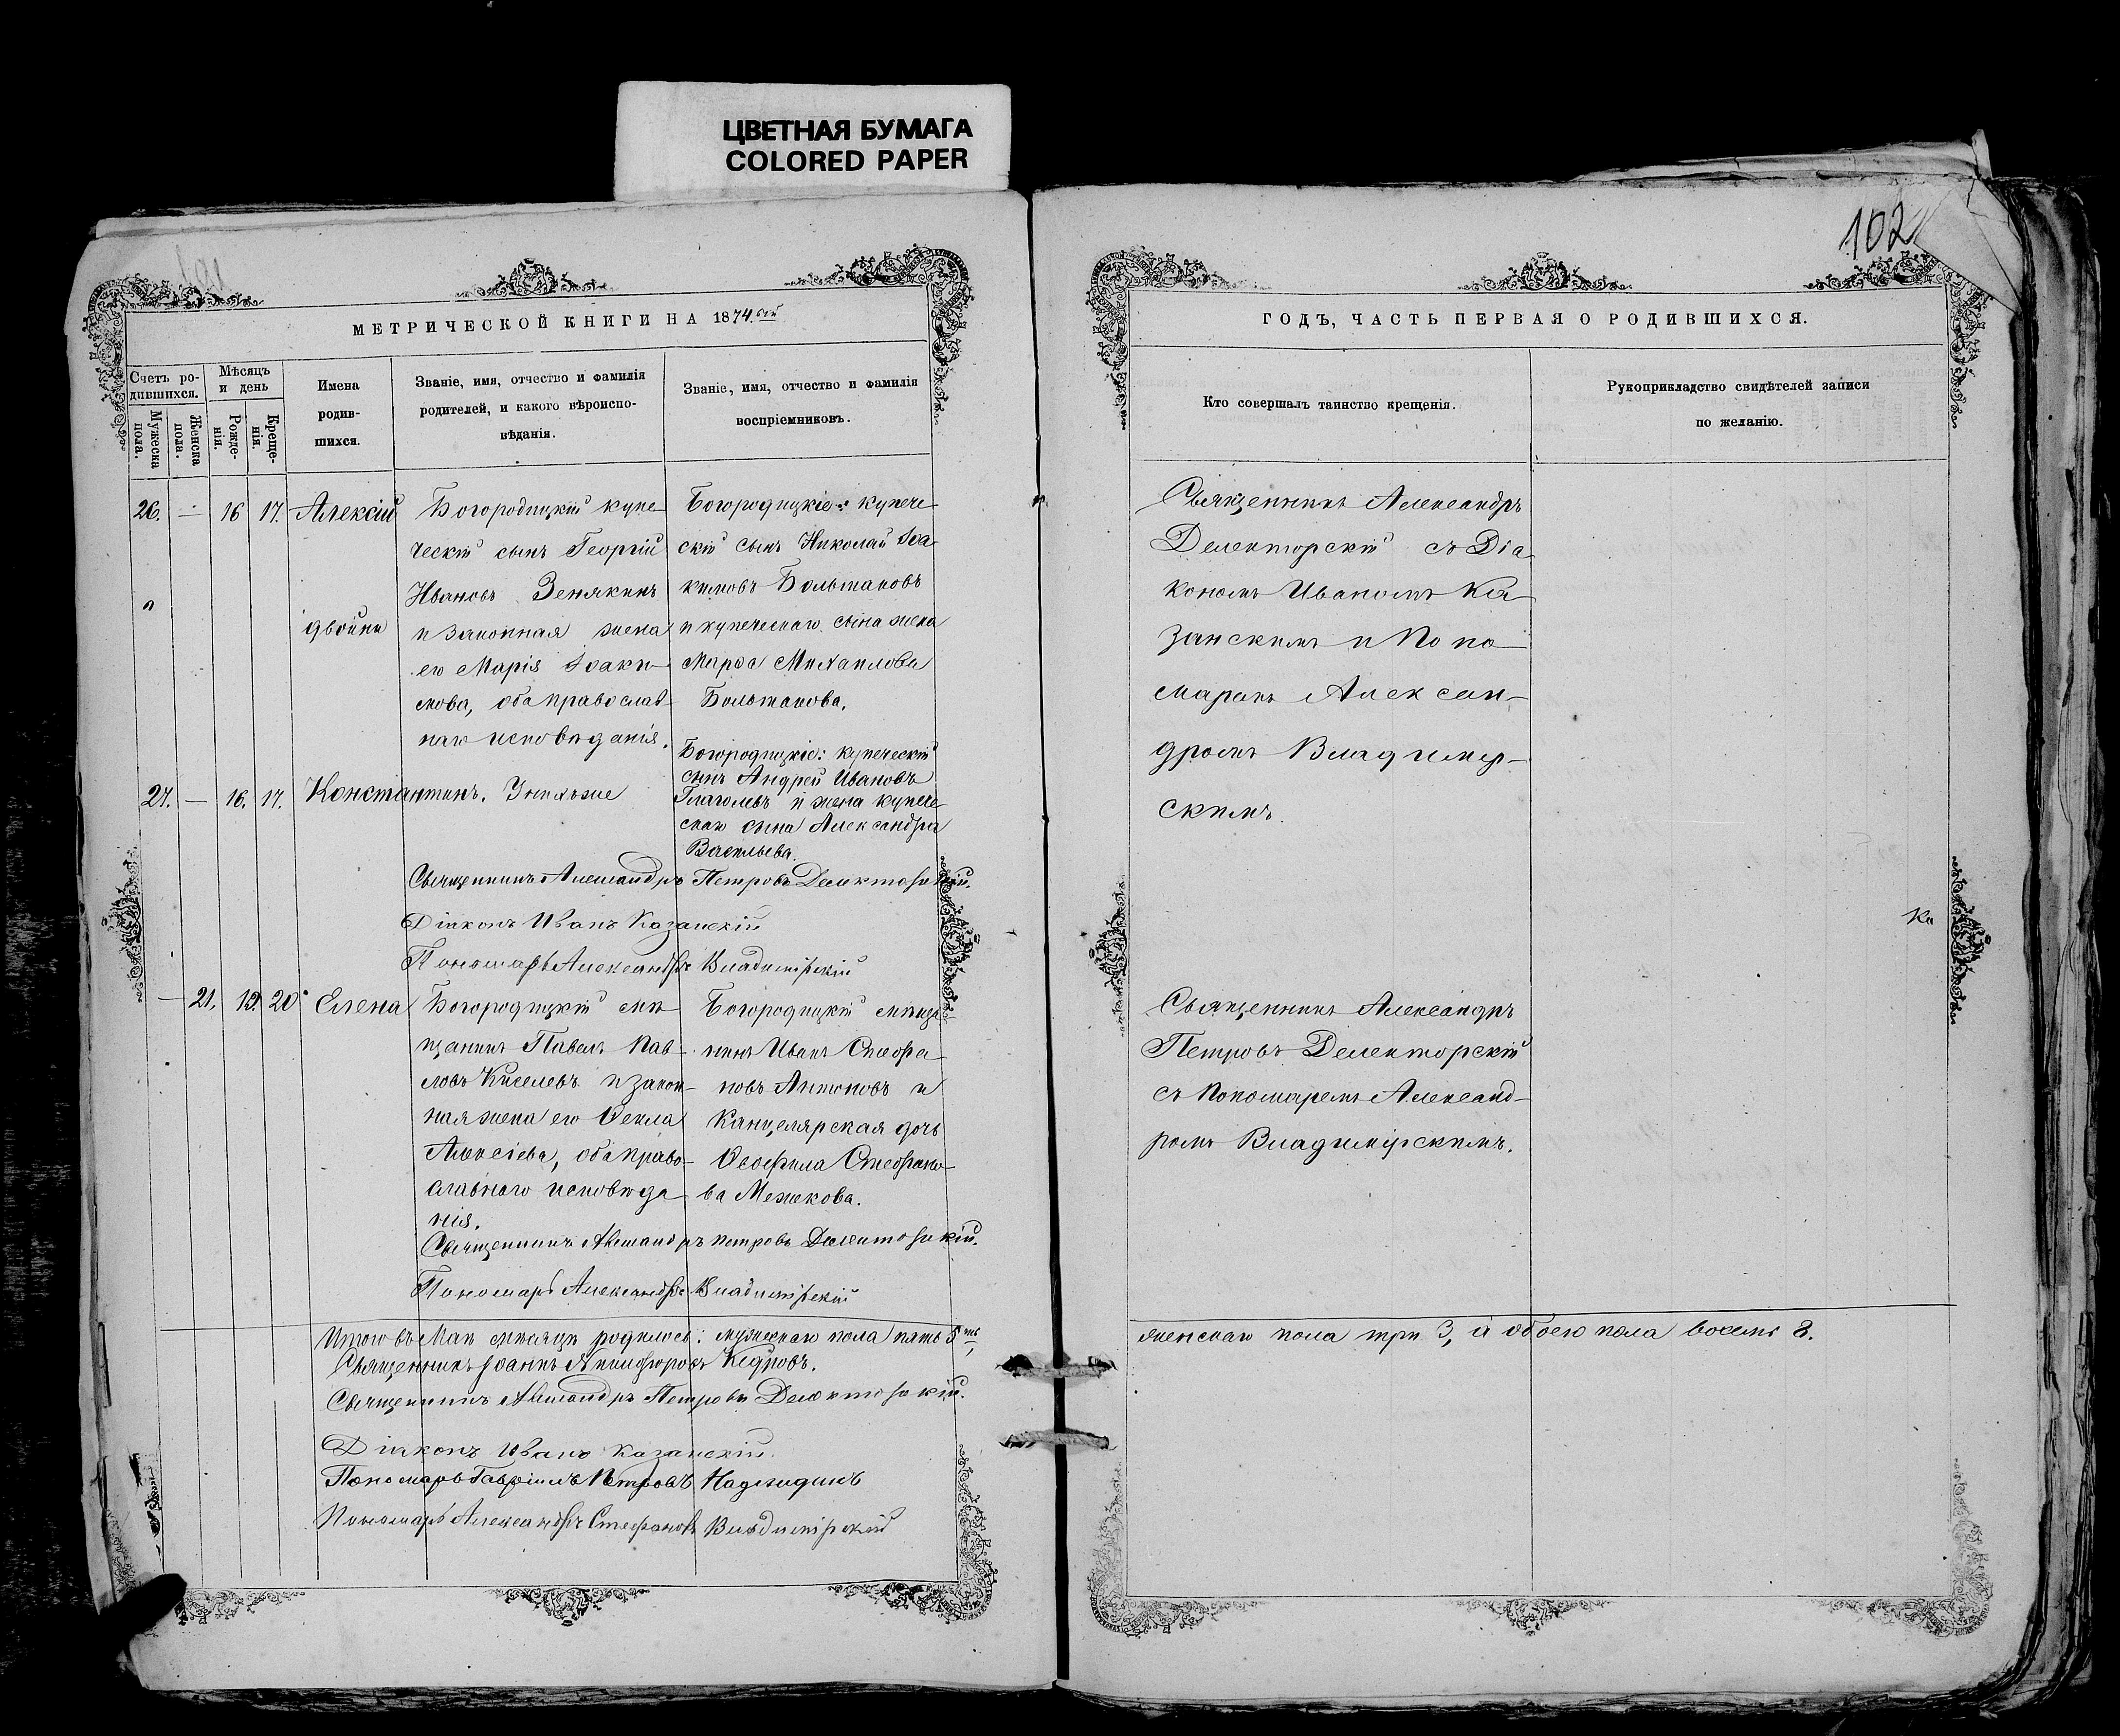 ЦВЕТНАЯ БУМАГА
COLORED PAPER
102
МЕТРИЧЕСКОЙ КНИГИ НА 1874.ый
Счетъ ро-
дившихся.
Мужеска
пола.
Женска
пола.
Мѣсяцъ
и день
Рожде-
нія.
Креще-
нія.
Имена
родив-
шихся.
Званіе, имя, отчество и фамилія
родителей, и какого вѣроиспо-
вѣданія.
Званіе, имя, отчество и фамилія
воспріемниковъ.
26. — 16 17. Алексій
двойни
Богородицкій купе-
ческій сынъ Георгій
Ивановъ Зенякинъ
и законная жена
его Марія Іоаки-
мова, оба православ
наго исповѣданія.
Богородицкіе: купече-
скій сынъ Николай Іоа-
кимовъ Болтановъ
и купеческаго сына жена
Марѳа Михаилова
Болтанова.
27. — 16. 17. Константинъ. У нихъ же
Богородицкіе: купеческій
сынъ Андрей Ивановъ
Глаголевъ и жена купече-
скаго сына Александра
Васильева.
Священникъ Александръ Петровъ Делекторскій.
Діаконъ Иванъ Казанскій
Пономарь Александръ Владимірскій
— 21. 19. 20. Елена
Богородицкій мѣ-
щанинъ Павелъ Пав-
ловъ Киселевъ и закон-
ная жена его Ѳекла
Алексіева, оба право-
славнаго исповѣда-
нія.
Богородицкій мѣща-
нинъ Иванъ Стефа-
новъ Антоновъ и
Канцелярская дочь
Ѳеофила Стефано-
ва Межкова.
Священникъ Александръ Петровъ Делекторскій.
Пономарь Александръ Владимірскій
Итого въ Маѣ мѣсяцѣ родилось: мужескаго пола пять 5ть,
Священникъ Іоаннъ Никифоровъ Кедровъ.
Священникъ Александръ Петровъ Делекторскій.
Діаконъ Иванъ Казанскій.
Пономарь Гавріилъ Петровъ Надеждинъ
Пономарь Александръ Стефановъ Владимірскій
ГОДЪ, ЧАСТЬ ПЕРВАЯ О РОДИВШИХСЯ.
Кто совершалъ таинство крещенія.
Рукоприкладство свидѣтелей записи
по желанію.
Священникъ Александръ
Делекторскій съ Діа-
кономъ Иваномъ Ка-
занскимъ и Поно-
маремъ Алексан-
дромъ Владимір-
скимъ.
Ка
Священникъ Александръ
Петровъ Делекторскій
съ Пономаремъ Александ-
ромъ Владимірскимъ.
женскаго пола три 3, а обоего пола восемь 8.